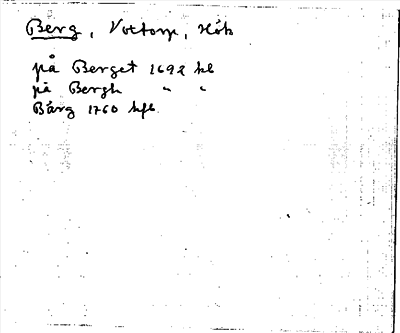 Berg, Vottorp, Hök
på Berget 1692 kl
på Bergh " "
Bärg 1760 hfl.